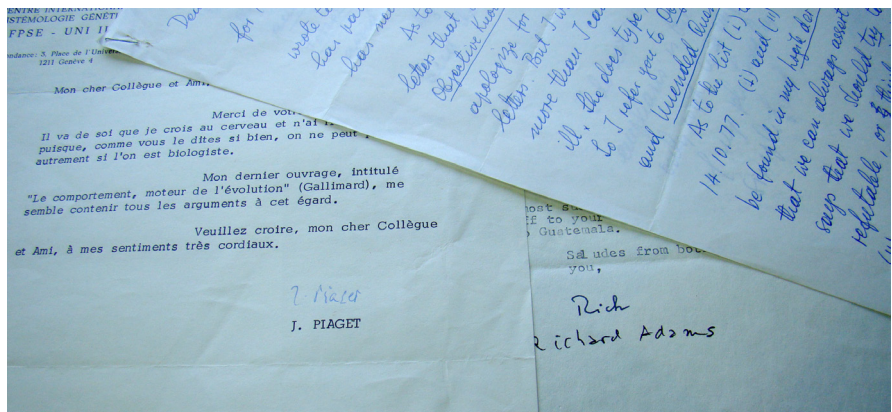 CENTRE INTERNATION
ISTÉMOLOGIE GÉNÉTI
FPSE - UNI II
ndance: 3, Place de l'Univer
1211 Genève 4
Mon cher Collègue et Ami,
Merci de vot
Il va de soi que je crois au cerveau et n'ai
puisque, comme vous le dites si bien, on ne peut
autrement si l'on est biologiste.
Mon dernier ouvrage, intitulé
"Le comportement, moteur de l'évolution" (Gallimard), me
semble contenir tous les arguments à cet égard.
Veuillez croire, mon cher Collègue
et Ami, à mes sentiments très cordiaux.
J. Piaget
J. PIAGET
for
wrote to
has
has
As to
letters that
Objective Know
apologize for
letters. But I
more than I can
ill; she does type
So I refer you to
and Unended Ques
As to the list (i)
14.10.77. (i) and (ii)
be found in my
that we can always assert
says that we should try to
refutable, or
ost
ff to your
Guatemals.
Sal udes from bot
you,
Rich
Richard Adams